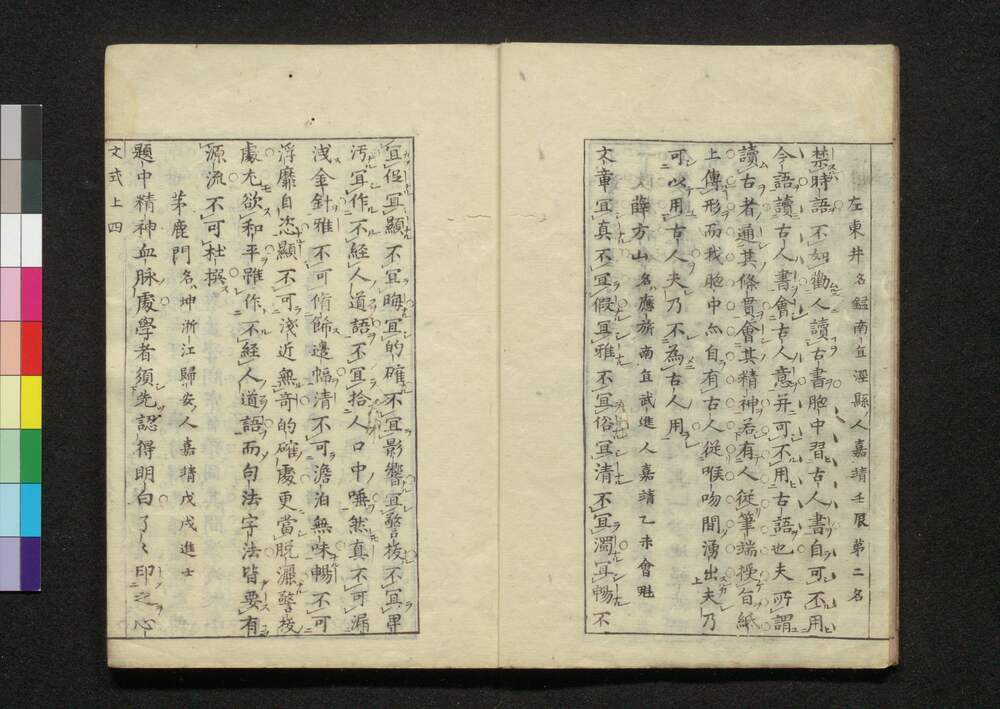 左東井名鎰南直涇縣人嘉靖壬辰第二名
禁時語不如勸人讀古書胞中習古人書自可不用
今語讀古人書會古人意并可不用古語也夫所謂
讀古者通其條貫會其精神若有人從筆端授白紙
上傳形而我胞中亦自有古人從喉吻間湧出夫乃
可以用古人夫乃不為古人用
薛方山名應旂南直武進人嘉靖乙未會魁
文章宜真不宜假宜雅不宜俗宜清不宜濁宜暢不
宜促宜顯不宜晦宜的確不宜影響宜警拔不宜卑
汚宜作不經人道語不宜拾人口中唾然真不可漏
洩金針雅不可脩飾邉幅清不可澹泊無味暢不可
浮靡自恣顯不可淺近無奇的確處更當脫灑警拔
處尤欲和平雖作不經人道語而句法字法皆要有
源流不可杜撰
茅鹿門名坤浙江歸安人嘉靖戊戌進士
題中精神血脉處學者須先認得明白了々印之心
文式上四